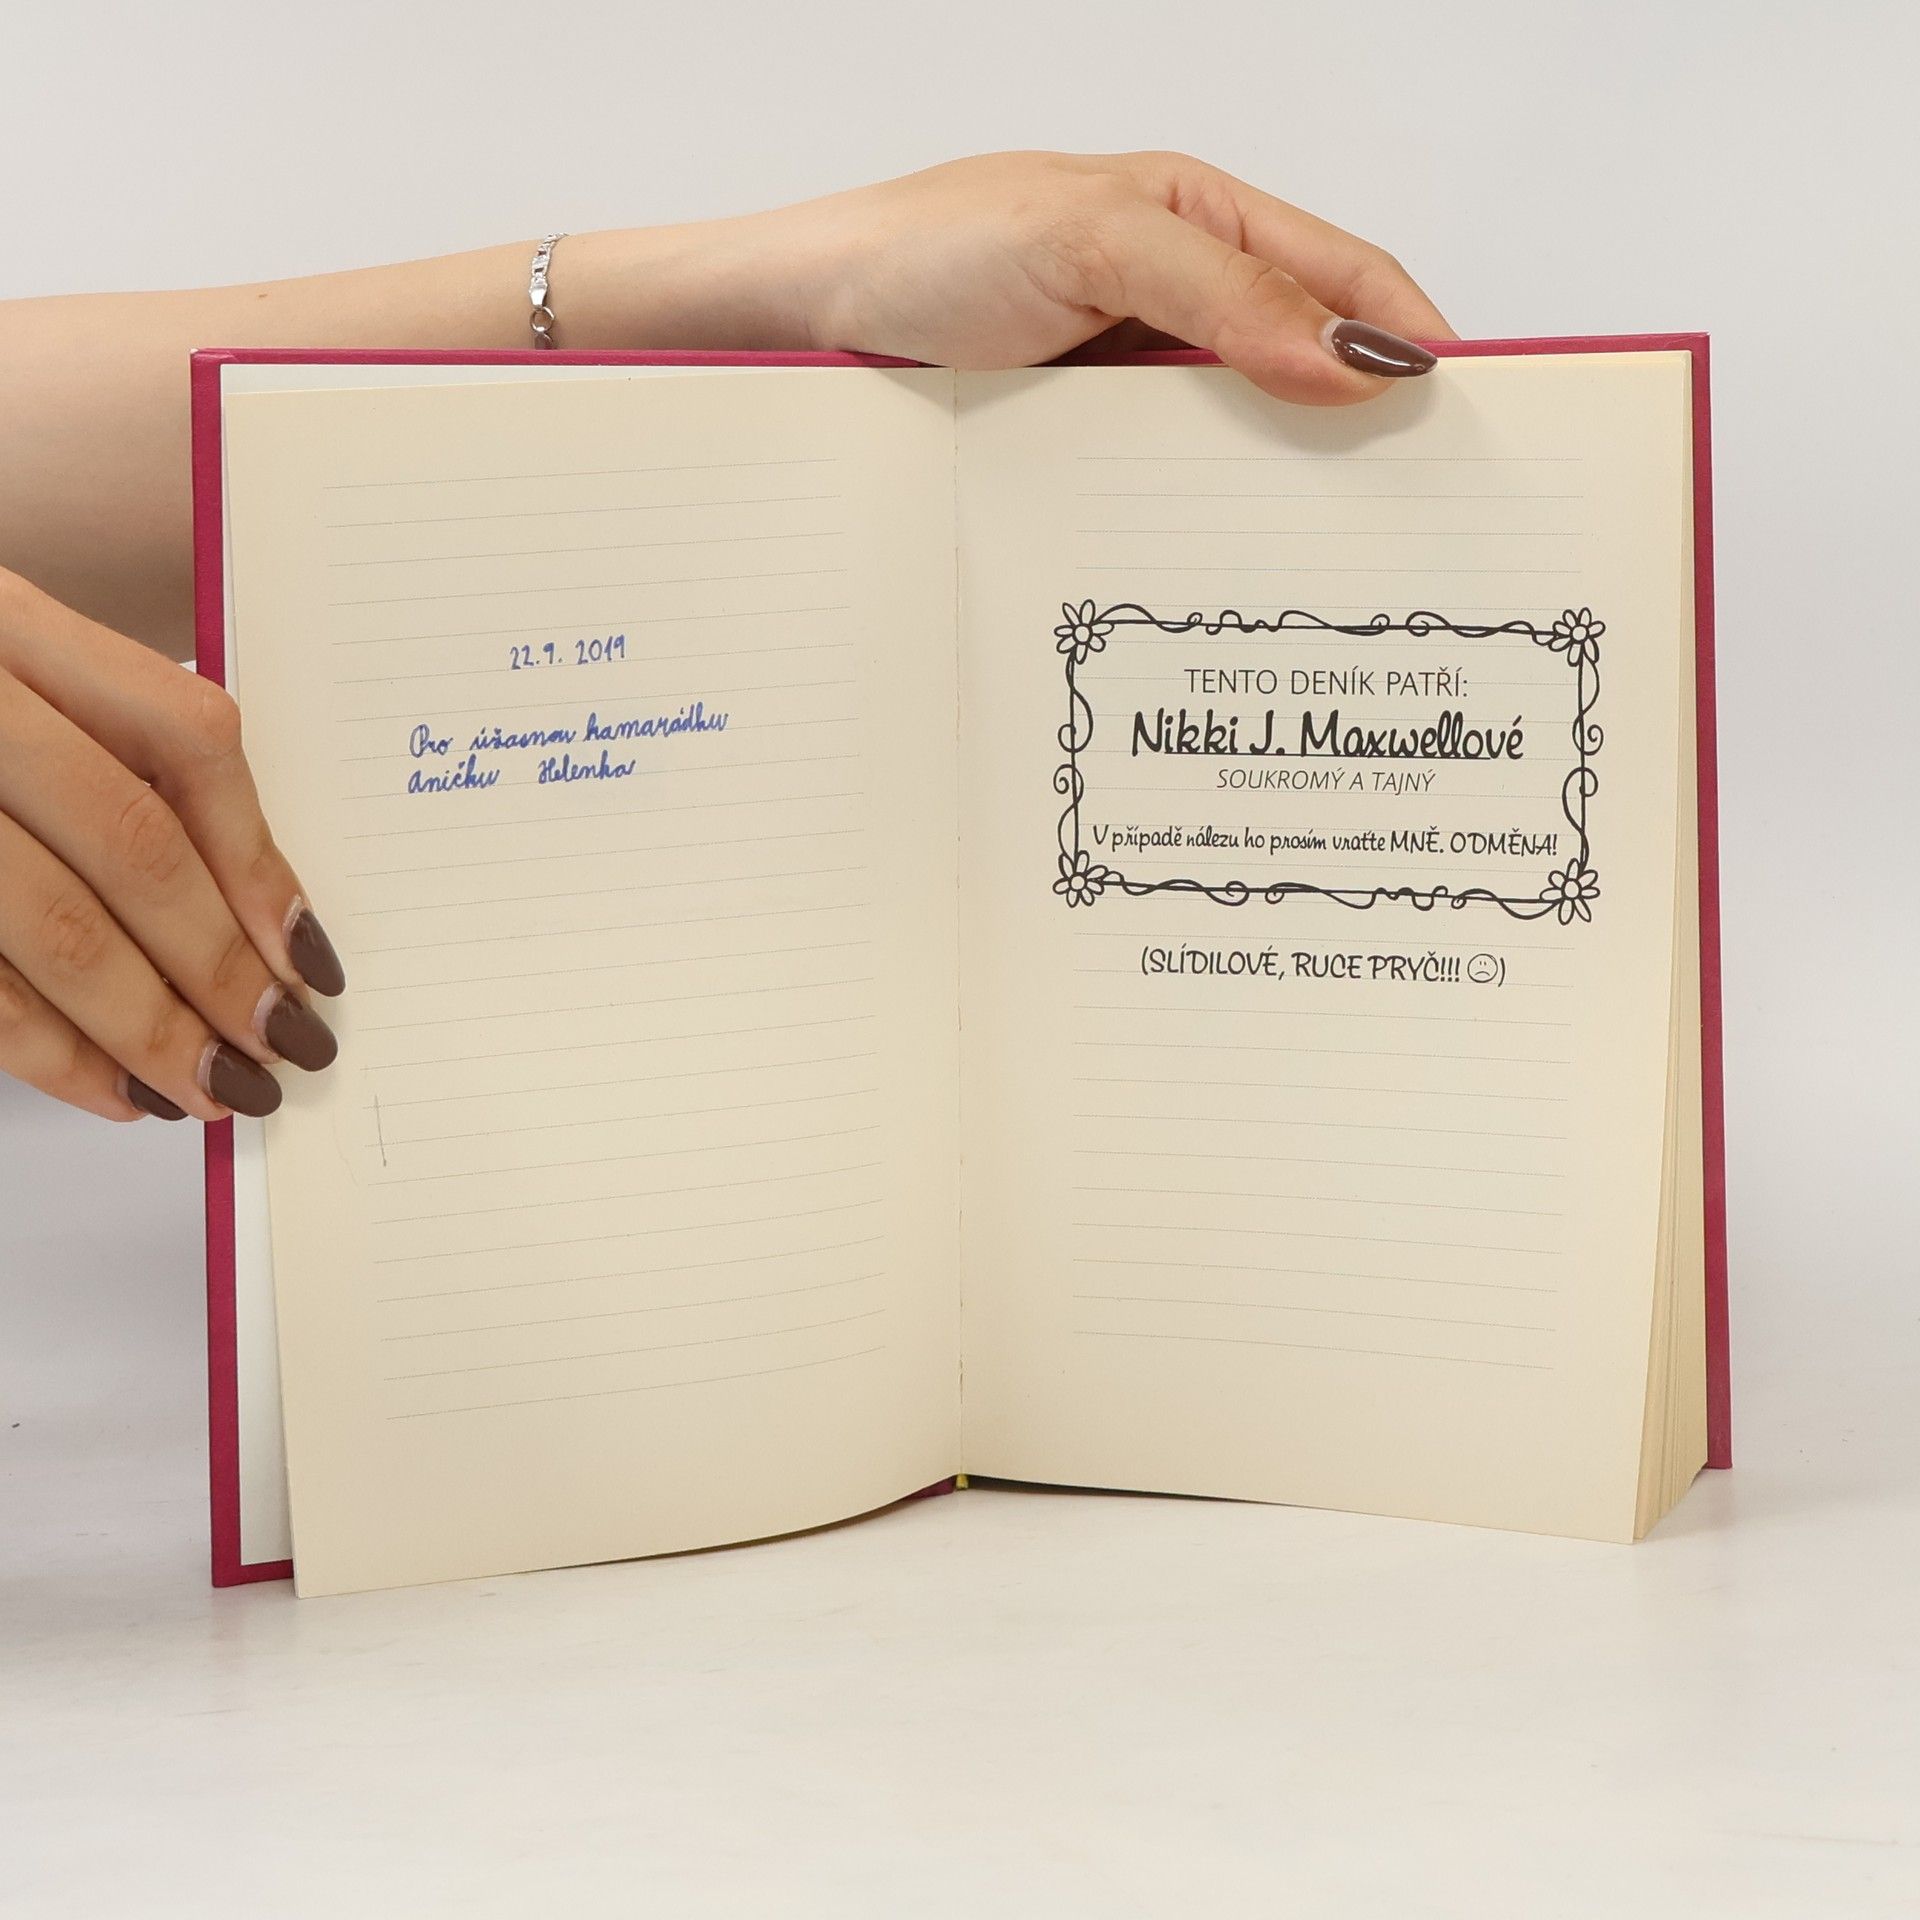 22.9. 2019
Pro úžasnou kamarádku
Aničku Helenka
TENTO DENÍK PATŘÍ:
Nikki J. Maxwellové
SOUKROMÝ A TAJNÝ
V případě nálezu ho prosím vraťte MNĚ. ODMĚNA!
(SLÍDILOVÉ, RUCE PRYČ!!! ☹)